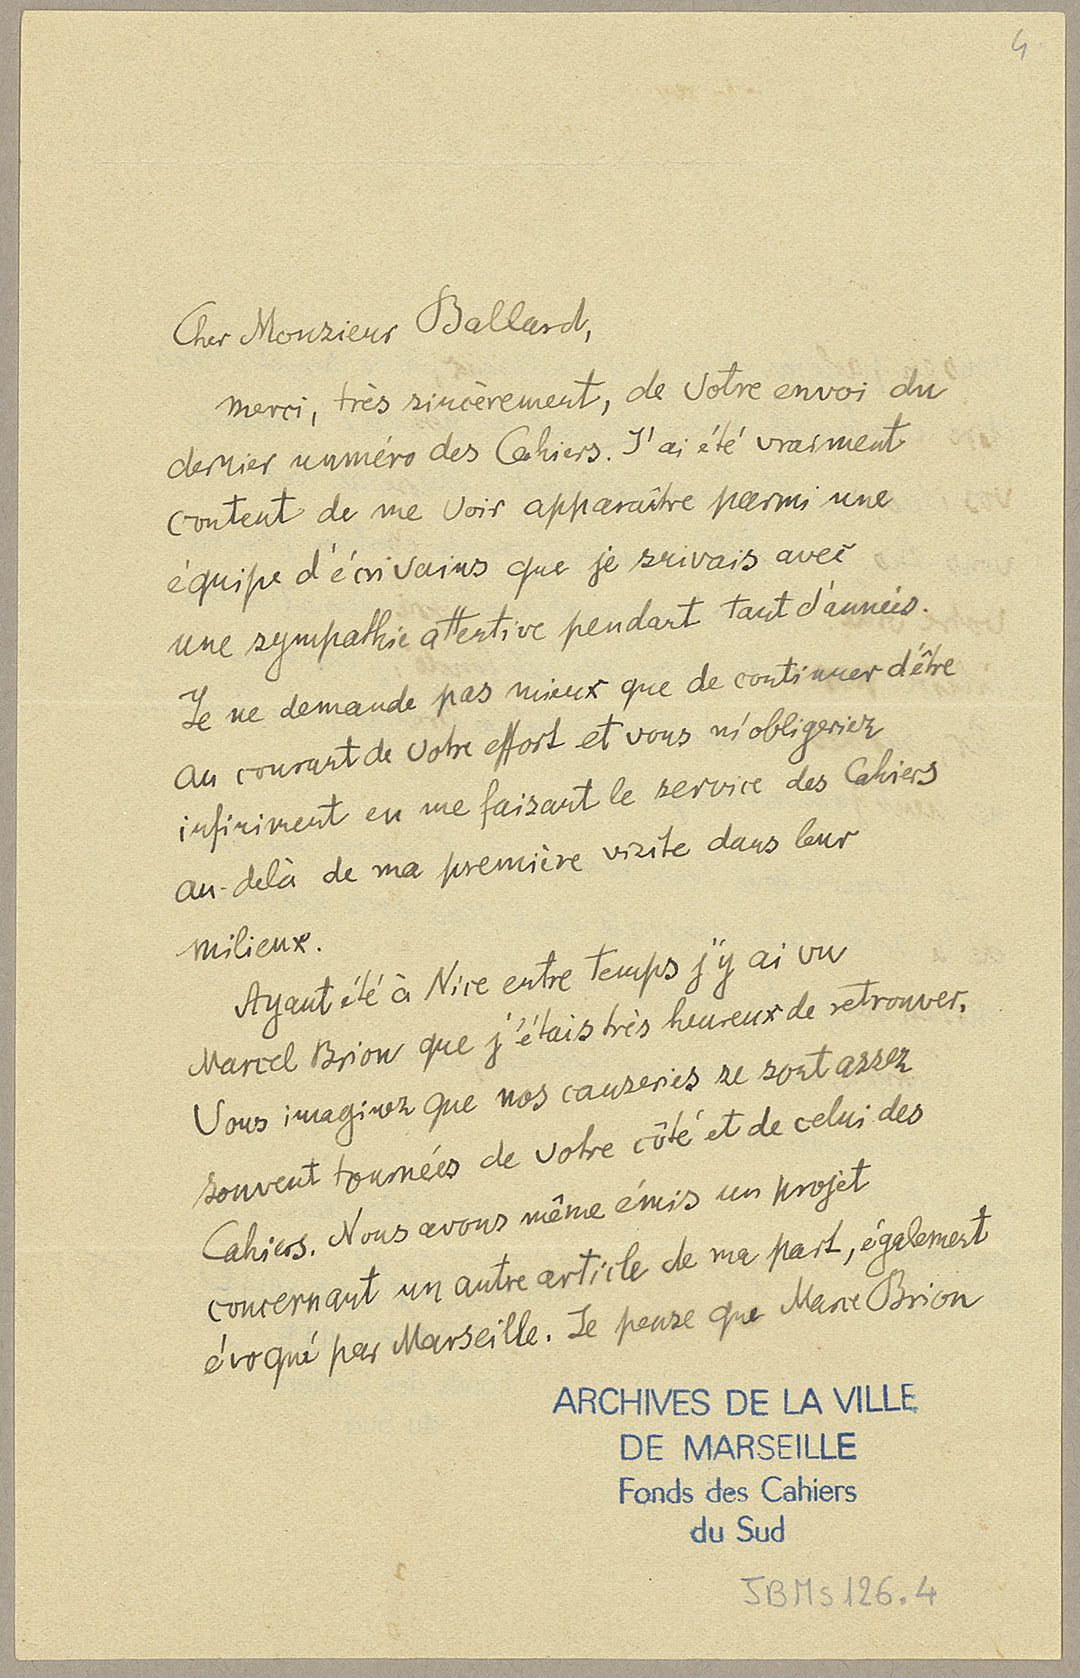 4
Cher Monsieur Ballard,
merci, très sincèrement, de votre envoi du
dernier numéro des Cahiers. J'ai été vraiment
content de me voir apparaître parmi une
équipe d'écrivains que je suivais avec
une sympathie attentive pendant tant d'années.
Je ne demande pas mieux que de continuer d'être
au courant de votre effort et vous m'obligeriez
infiniment en me faisant le service des Cahiers
au-delà de ma première visite dans leur
milieux.
Ayant été à Nice entre temps j'y ai vu
Marcel Brion que j'étais très heureux de retrouver.
Vous imaginez que nos causeries se sont assez
souvent tournées de votre côté et de celui des
Cahiers. Nous avons même émis un projet
concernant un autre article de ma part, également
évoqué par Marseille. Je pense que Marcel Brion
ARCHIVES DE LA VILLE
DE MARSEILLE
Fonds des Cahiers
du Sud
JBMs126.4